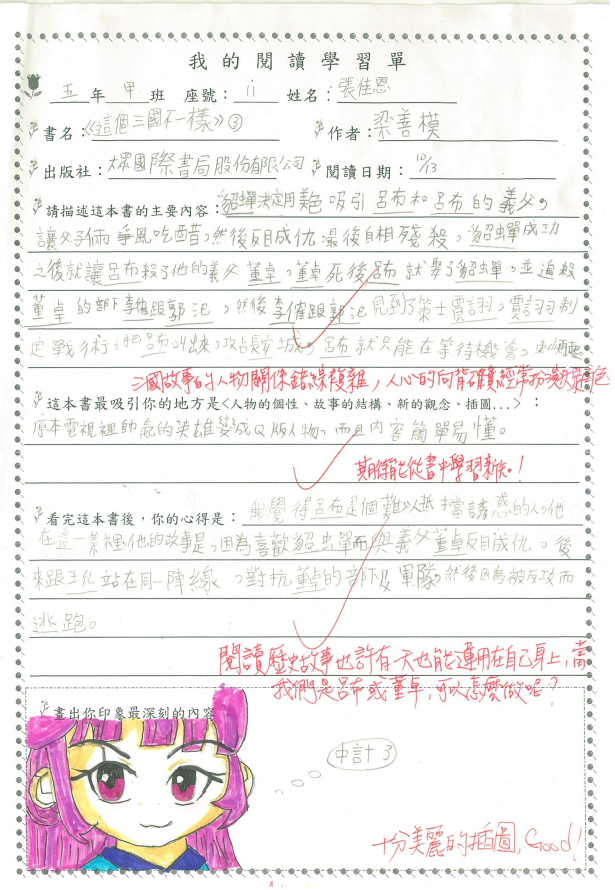 我的閱讀學習單
五年甲班 座號：11 姓名：張佳恩
書名：《這個三國不一樣》③ 作者：梁善模
出版社：大眾國際書局股份有限公司 閱讀日期：10/13
請描述這本書的主要內容：貂蟬決定用美色吸引呂布和呂布的義父，
讓父子倆爭風吃醋，然後反目成仇最後自相殘殺。貂蟬成功
之後就讓呂布殺了他的義父董卓。董卓死後呂布就娶了貂蟬，並追殺
董卓的部下李傕跟郭汜，然後李傕跟郭汜見到了策士賈詡，賈詡制
定戰術，把呂布叫出來，攻占長安城。呂布就只能在等待機會，
三國故事的人物關係錯綜複雜，人心的向背確實經常扮演
這本書最吸引你的地方是<人物的個性、故事的結構、新的觀念、插圖...>：
原本電視裡帥氣的英雄變成Q版人物，而且內容簡單易懂。
期待能從書中學習新知！
看完這本書後，你的心得是：我覺得呂布是個難以抵擋誘惑的人，他
在這一集裡他的故事是，因為喜歡貂蟬而與義父董卓反目成仇。後
來跟王允站在同一陣線，對抗董卓的部下及軍隊，然後因為被反攻而
逃跑。
閱讀歷史故事也許有一天也能運用在自己身上，當
我們是呂布或董卓，可以怎麼做呢？
畫出你印象最深刻的內容
中計了
十分美麗的插圖，Good！